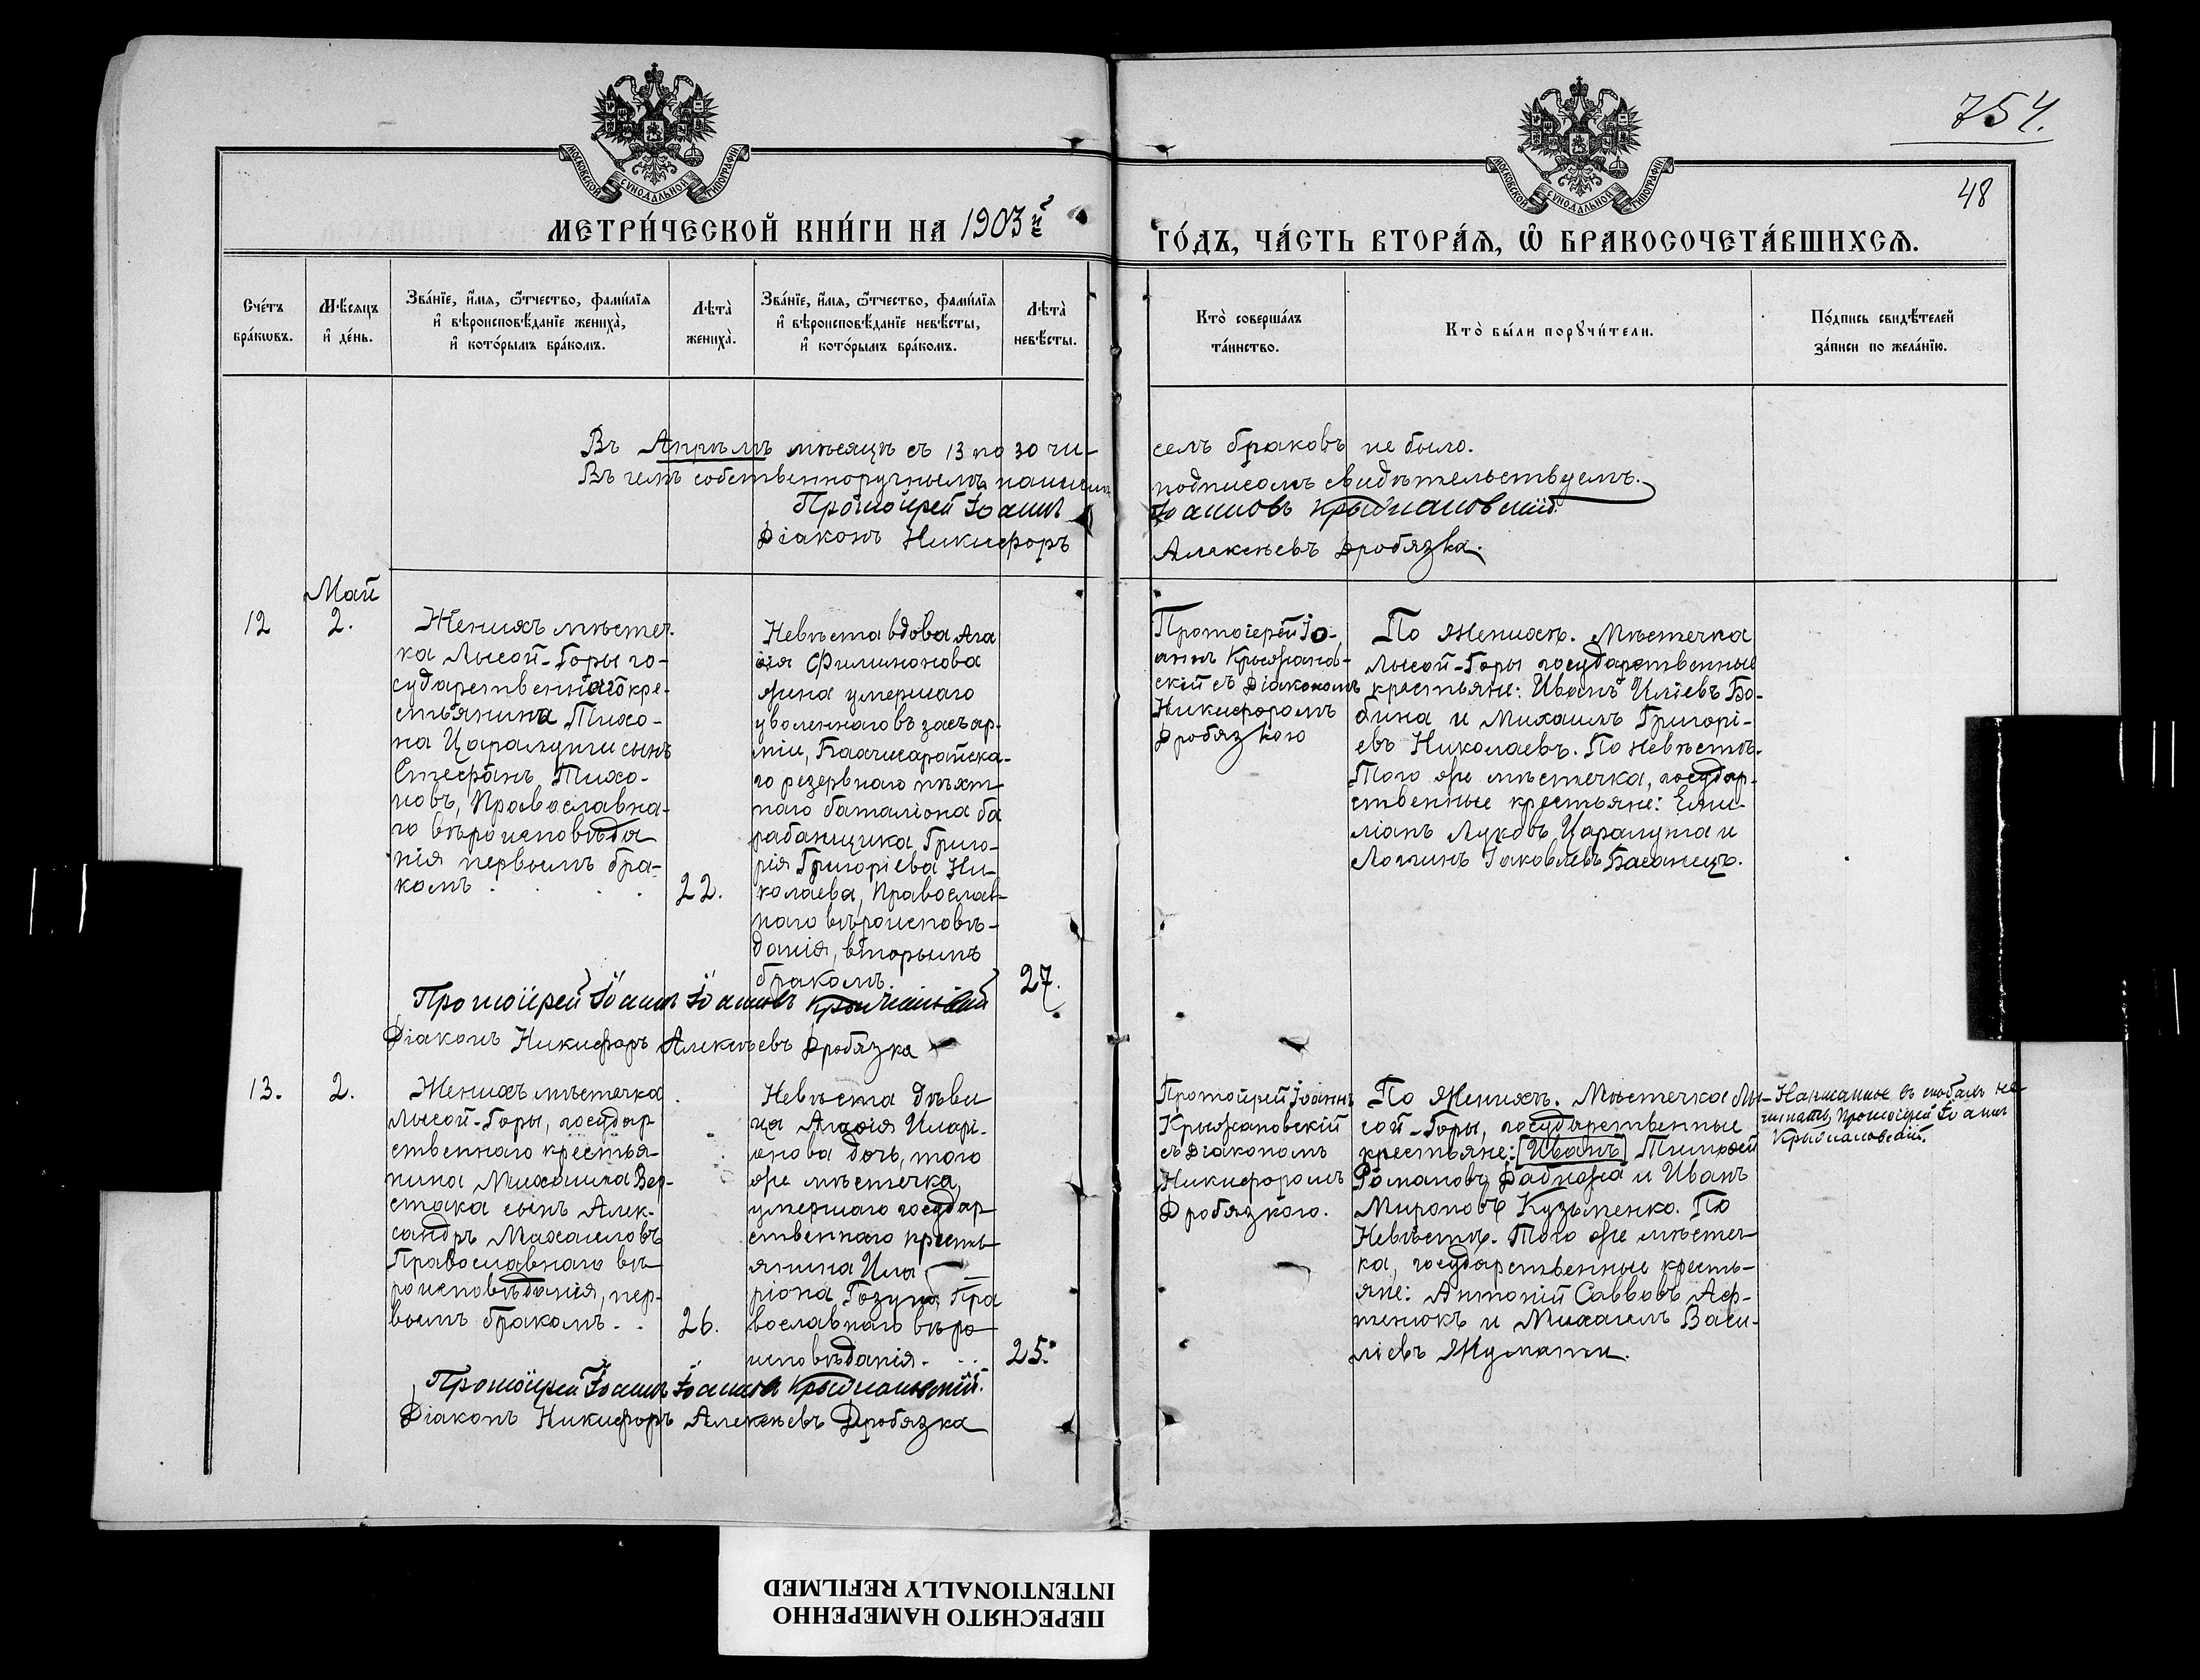 754.
48
МОСКОВСКОЙ СѴНОДАЛЬНОЙ ТИПОГРАФИИ
МОСКОВСКОЙ СѴНОДАЛЬНОЙ ТИПОГРАФИИ
МЕТРИ́ЧЕСКОЙ КНИ́ГИ НА 1903й
ГО́ДЪ, ЧА́СТЬ ВТОРА́Я, Ѡ БРАКОСОЧЕТА́ВШИХСѦ.
Сче́тъ
бра́кѡвъ.
Мѣ́сяцъ
и҆ де́нь.
Зва́нїе, и҆́мя, ѻ҆́тчество, фами́лїя
и҆ вѣроисповѣ́данїе жениха̀,
и҆ кото́рымъ бра́комъ.
Лѣта̀
жениха̀.
Зва́нїе, и҆́мя, ѻ҆́тчество, фами́лїя
и҆ вѣроисповѣ́данїе невѣ́сты,
и҆ кото́рымъ бра́комъ.
Лѣта̀
невѣ́сты.
Кто̀ соверша́лъ
та́инство.
Кто̀ бы́ли порꙋчи́тели.
По́дпись свидѣ́телей
за́писи по жела́нїю.
Въ Апрѣлѣ мѣсяцѣ съ 13 по 30 чи-
селъ браковъ не было.
Въ чемъ собственноручнымъ нашимъ
подписомъ свидѣтельствуемъ.
Протоіерей Іоаннъ
Іоанновъ Крыжановскій
Діаконъ Никифоръ
Алексѣевъ Дробязка.
Май
12
2.
Женихъ мѣстеч-
ка Лысой-Горы го-
сударственнаго кре-
стьянина Тихо-
на Царалунги сынъ
Стефанъ Тихо-
новъ, Православна-
го вѣроисповѣда
нія первымъ бра-
комъ . . .
22.
Невѣста вдова Ага
ѳія Филимонова
жена умершаго
уволеннаго въ запъ ар-
міи, Бахчисарайска-
го резервнаго пѣхот
наго баталіона ба
рабанщика, Григо-
рія Григоріева Ни-
колаева, Православ-
наго вѣроисповѣ-
данія, вторымъ
бракомъ.
27.
Протоіерей Іо-
аннъ Крыжанов-
скій съ Діакономъ
Никифоромъ
Дробязкою
По Женихѣ. Мѣстечка
Лысой-Горы государственные
крестьяне: Иванъ Иліевъ Бо-
бина и Михаилъ Григорі-
евъ Николаевъ. По Невѣстѣ.
Того же мѣстечка, государ-
ственные крестьяне: Еми-
ліанъ Луковъ Царалунга и
Логинъ Іаковлевъ Басанецъ.
Протоіерей Іоаннъ Іоанновъ Крыжановскій
Діаконъ Никифоръ Алексѣевъ Дробязка
13.
2.
Женихъ мѣстечка
Лысой-Горы, государ
ственнаго крестья-
нина Михаила Вер-
стака сынъ Алек-
сандръ Михаиловъ
Православнаго вѣ-
роисповѣданія, пер-
вымъ бракомъ. .
26.
Невѣста дѣви
ца Агаѳія Иларі-
онова дочь, того
же мѣстечка,
умершаго государ
ственнаго кресть
янина Ила
ріона Гозуна Пра
вославнаго вѣро
исповѣданія. . .
25.
Протоіерей Іоаннъ
Крыжановскій
съ Діакономъ
Никифоромъ
Дробязкою.
По Женихѣ. Мѣстечка Лы-
сой-Горы, государственные
крестьяне: [Иванъ] Тимофей
Романовъ Дабижа и Иванъ
Мироновъ Кузьменко. По
Невѣстѣ. Того же мѣстеч-
ка, государственные кресть-
яне: Антоній Саввовъ Аф-
тенюкъ и Михаилъ Васи-
ліевъ Жумати.
Написанное въ скобахъ не
читать, Протоіерей Іоаннъ
Крыжановскій.
Протоіерей Іоаннъ Іоанновъ Крыжановскій.
Діаконъ Никифоръ Алексѣевъ Дробязка
ПЕРЕСНЯТО НАМЕРЕННО
INTENTIONALLY REFILMED